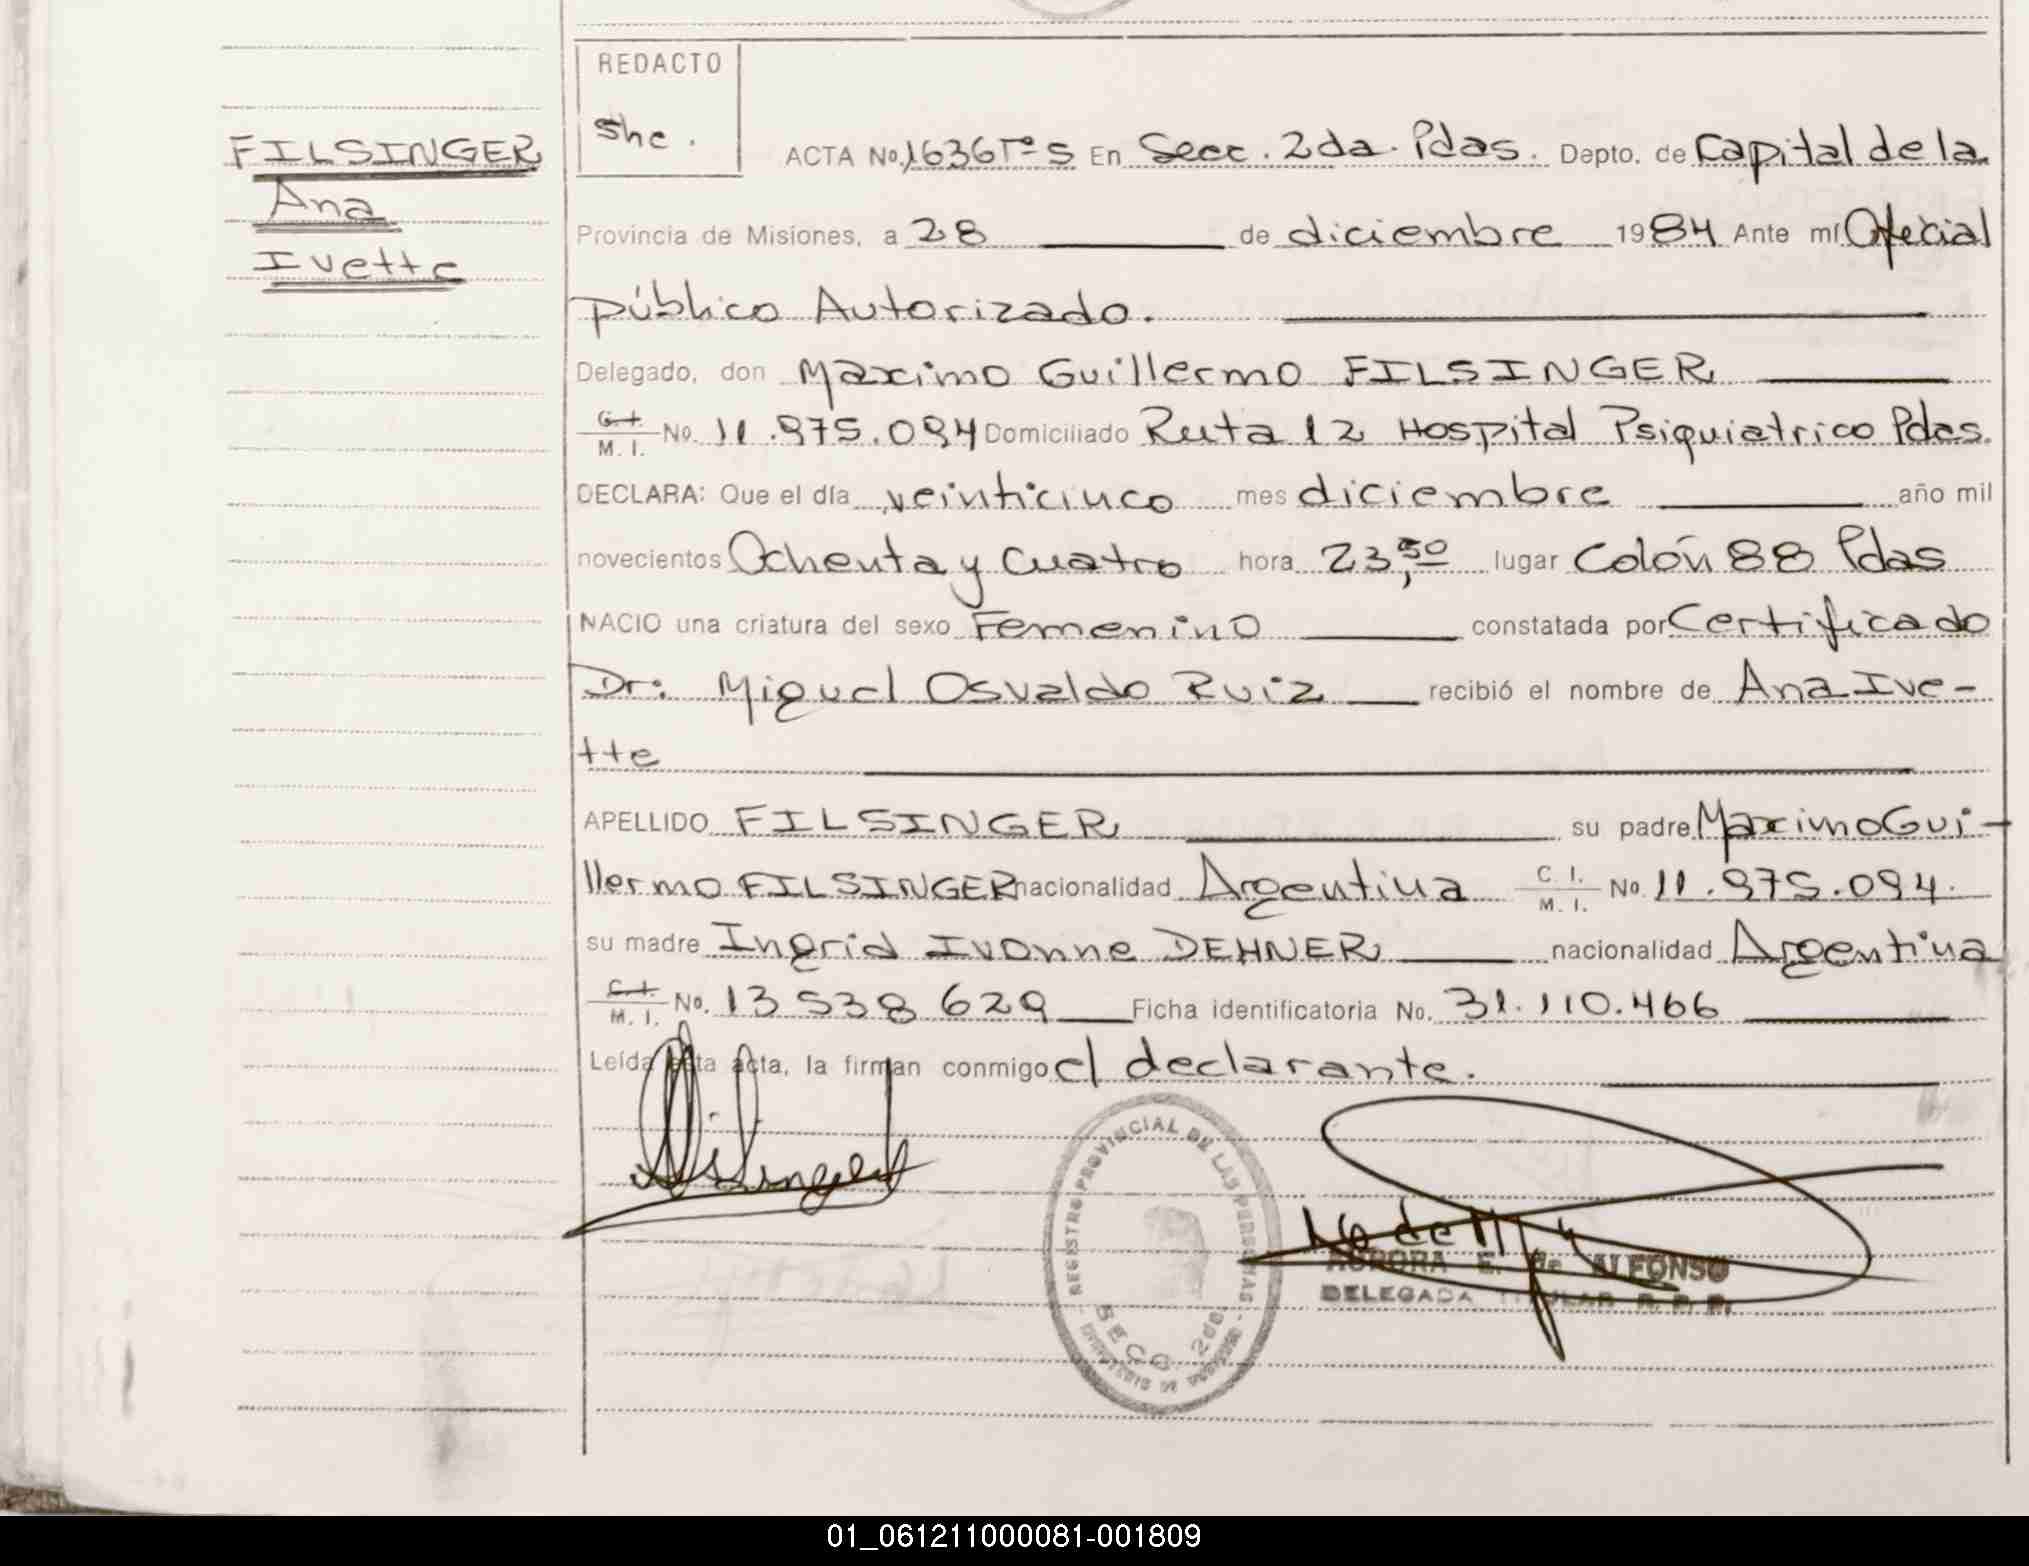 REDACTO
She.
FILSINGER
Ana
Ivette
ACTA No. 1636 Tº 5 En Secc. 2da. Pdas. Depto. de Capital de la
Provincia de Misiones, a 28 de diciembre 1984 Ante mí Oficial
público Autorizado.
Delegado, don Maximo Guillermo FILSINGER
C.I. / M. I. No. 11.975.094 Domiciliado Ruta 12 Hospital Psiquiatrico Pdas.
DECLARA: Que el día veinticinco mes diciembre año mil
novecientos Ochenta y Cuatro hora 23,50 lugar Colón 88 Pdas
NACIO una criatura del sexo Femenino constatada por Certificado
Dr: Miguel Osvaldo Ruiz recibió el nombre de Ana Ive-
tte
APELLIDO FILSINGER su padre Maximo Gui-
llermo FILSINGER nacionalidad Argentina C. I. / M. I. No. 11.975.094.
su madre Ingrid Ivonne DEHNER nacionalidad Argentina
C.I. / M. I. No. 13 538 629 Ficha identificatoria No. 31.110.466
Leída esta acta, la firman conmigo el declarante.
REGISTRO PROVINCIAL DE LAS PERSONAS
SECC 2da.
AURORA E. de ALFONSO
DELEGADA TITULAR R. P. P.
01_061211000081-001809